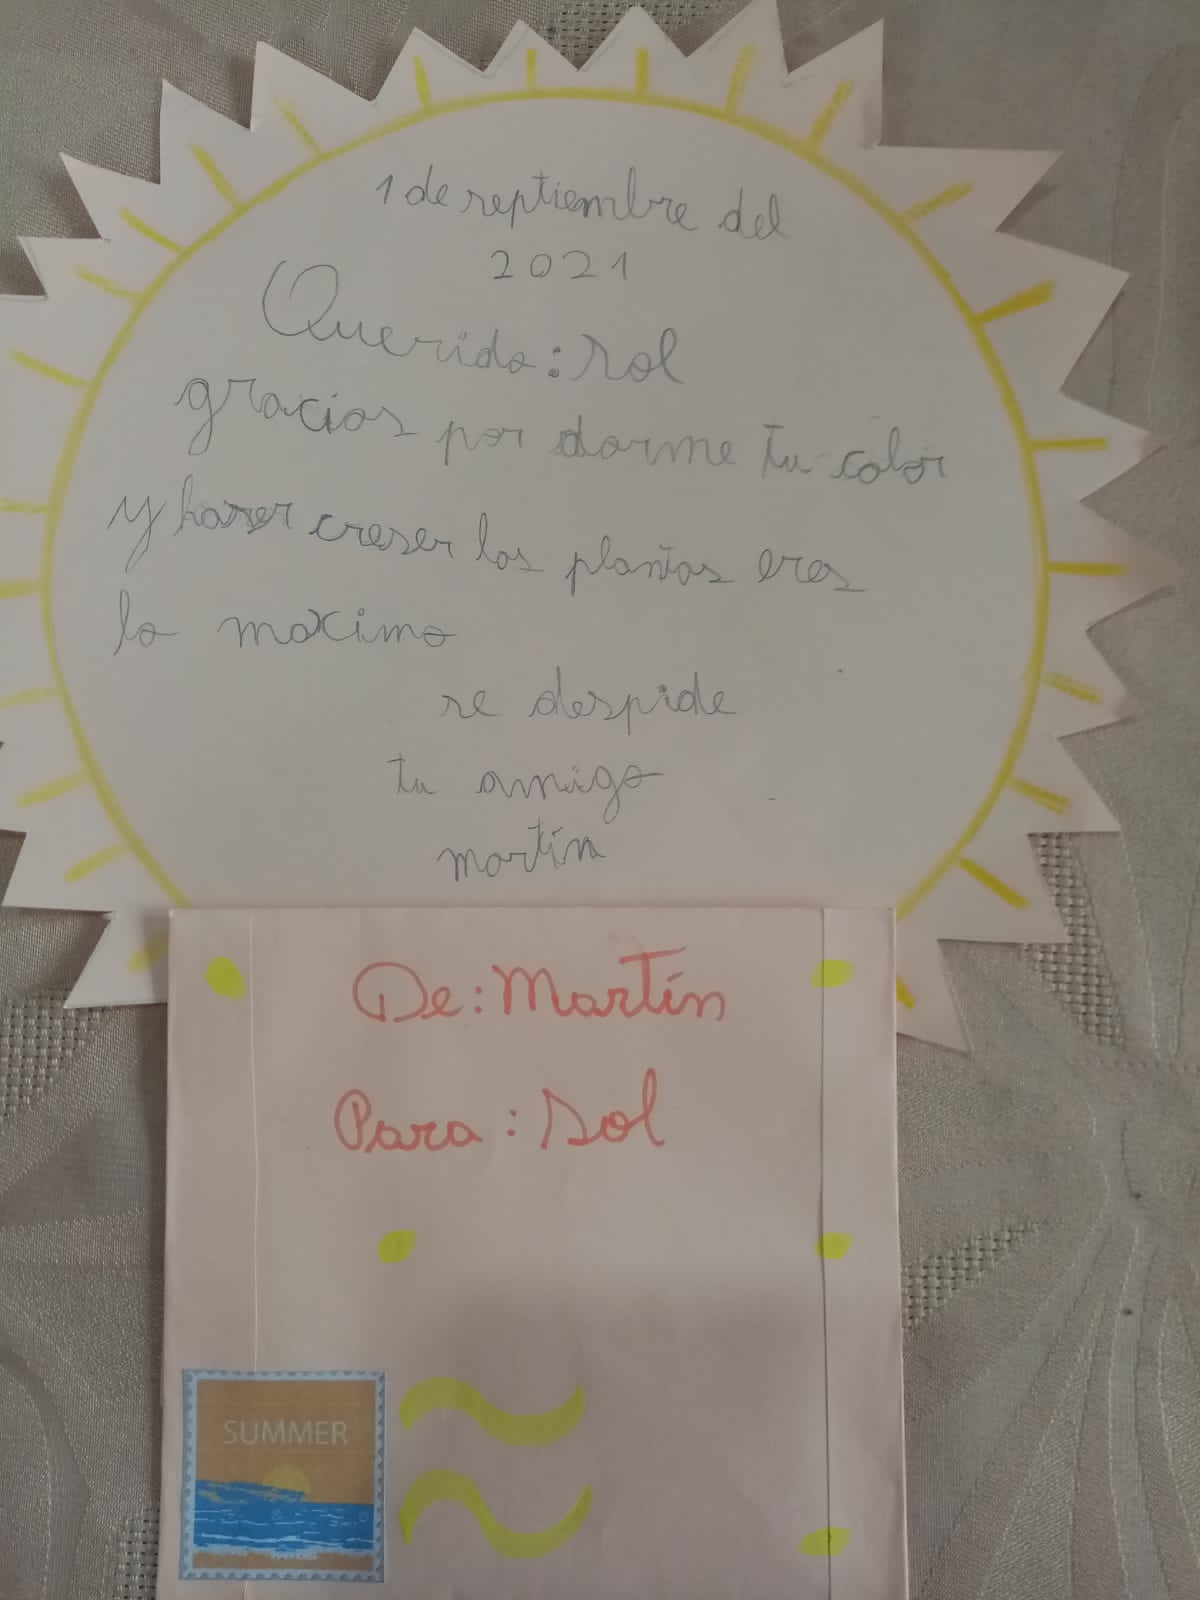 1 de septiembre del
2021
Querido: sol
gracias por darme tu color
y haser creser las plantas eres
lo maximo
se despide
tu amigo
martín
De: Martín
Para: Sol
SUMMER